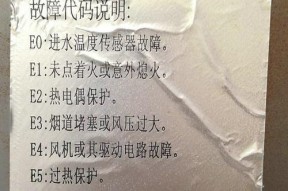 故障代码说明:
E0:进水温度传感器故障。
E1:未点着火或意外熄火。
E2:热电偶保护。
E3:烟道堵塞或风压过大。
E4:风机或其驱动电路故障。
E5:过热保护。